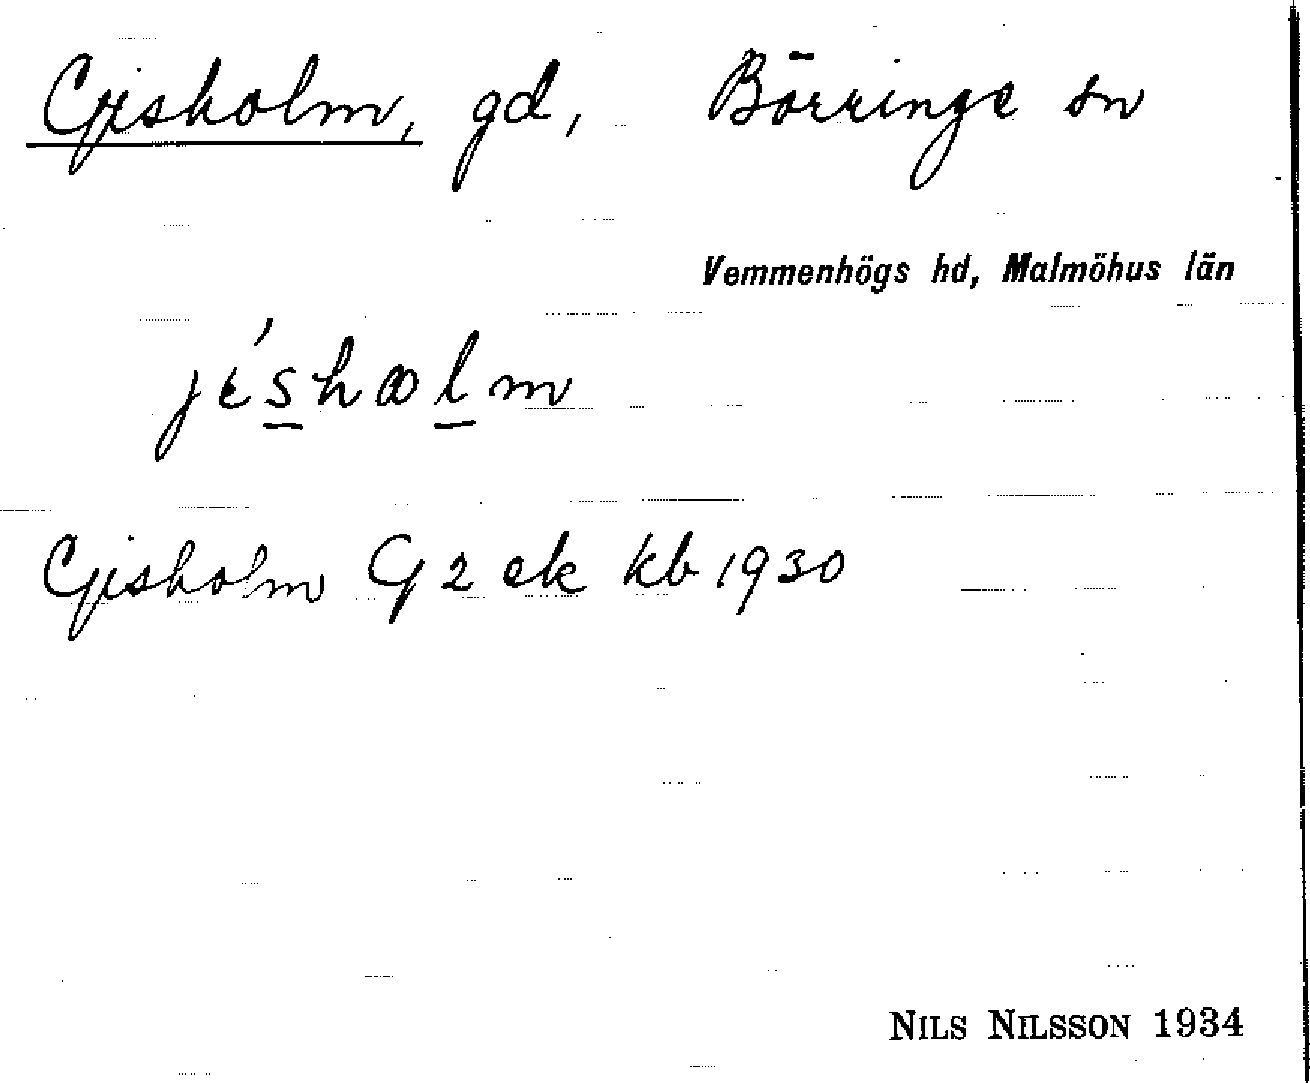 Gisholm, gd, Börringe sn
Vemmenhögs hd, Malmöhus län
Gisholm G 2 ek kb 1930
NILS NILSSON 1934